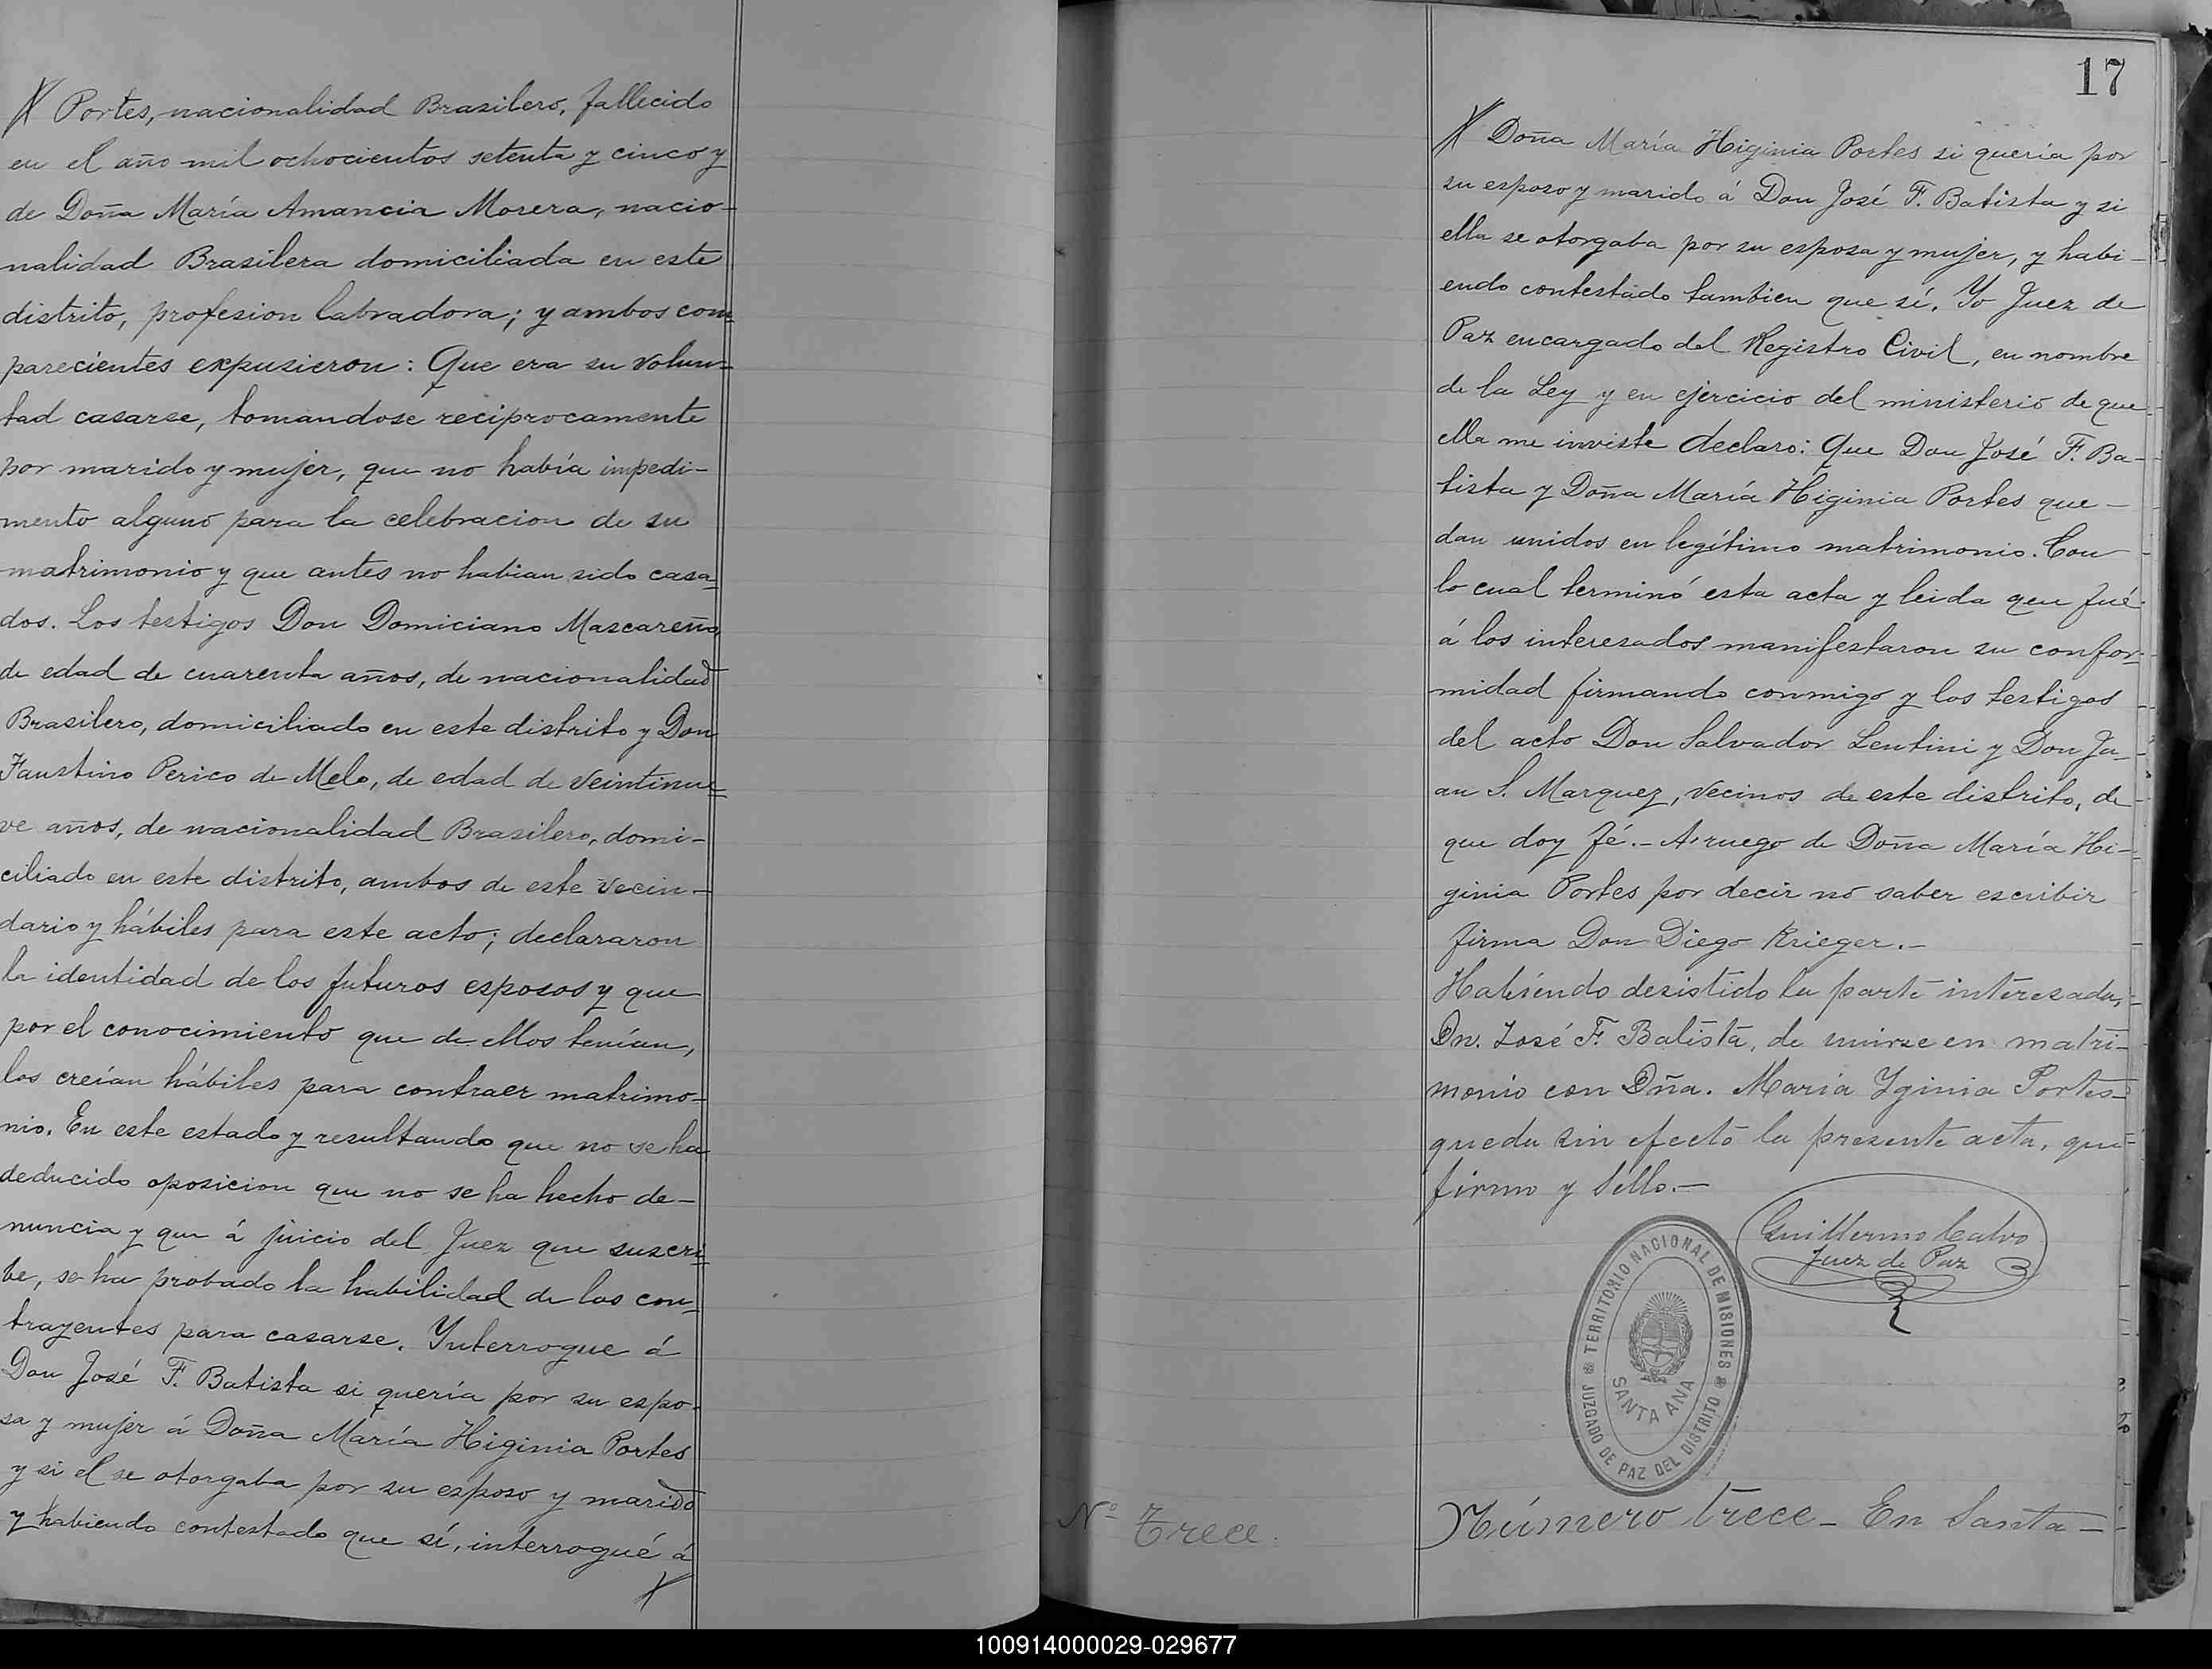 Portes, nacionalidad Brasilero, fallecido
en el año mil ochocientos setenta y cinco y
de Doña María Amancia Morera, nacio-
nalidad Brasilera domiciliada en este
distrito, profesion labradora; y ambos com-
parecientes expusieron: Que era su volun-
tad casarse, tomandose reciprocamente
por marido y mujer, que no había impedi-
mento alguno para la celebracion de su
matrimonio y que antes no habian sido casa-
dos. Los testigos Don Domiciano Mascareño,
de edad de cuarenta años, de nacionalidad
Brasilero, domiciliado en este distrito y Don
Faustino Perico de Melo, de edad de veintinue-
ve años, de nacionalidad Brasilero, domi-
ciliado en este distrito, ambos de este vecin-
dario y hábiles para este acto; declararon
la identidad de los futuros esposos y que
por el conocimiento que de ellos tenían,
los creían hábiles para contraer matrimo-
nio. En este estado y resultando que no se ha
deducido oposicion que no se ha hecho de-
nuncia y que á juicio del Juez que suscri-
be, se ha probado la habilidad de los con-
trayentes para casarse. Ynterrogue á
Don José F. Batista si quería por su espo-
sa y mujer á Doña María Higinia Portes
y si el se otorgaba por su esposo y marido
y habiendo contestado que sí, interrogué á
17
Doña María Higinia Portes si quería por
su esposo y marido á Don José F. Batista y si
ella se otorgaba por su esposa y mujer, y habi-
endo contestado tambien que sí. Yo Juez de
Paz encargado del Registro Civil, en nombre
de la Ley y en ejercicio del ministerio de que
ella me inviste declaro: Que Don José F. Ba-
tista y Doña María Higinia Portes que-
dan unidos en legítimo matrimonio. Con
lo cual terminó esta acta y leida que fué
á los interesados manifestaron su confor-
midad firmando conmigo y los testigos
del acto Don Salvador Lentini y Don Ju-
an S. Marquez, vecinos de este distrito, de
que doy fé.- A ruego de Doña María Hi-
ginia Portes por decir no saber escribir
firma Don Diego Krieger.-
Habiendo desistido la parte interesada,
Dn. José F. Batista, de unirse en matri-
monio con Dña. Maria Yginia Portes
queda sin efecto la presente acta, que
firmo y sello.-
Guillermo Calvo
Juez de Paz
TERRITORIO NACIONAL DE MISIONES
SANTA ANA
JUZGADO DE PAZ DEL DISTRITO
Nº Trece.
Número trece - En Santa-
100914000029-029677